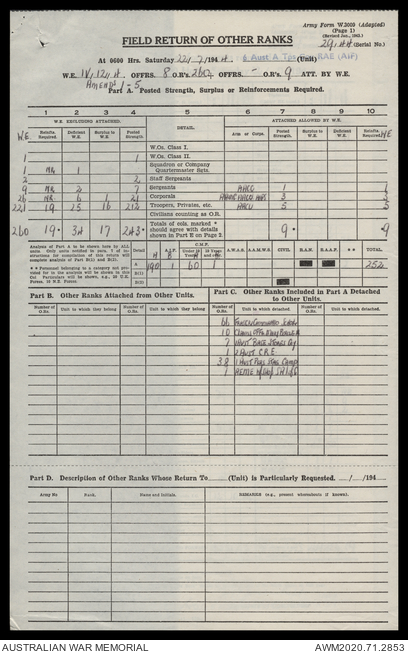 Army Form W.3009 (Adapted)
(Page 1)
(Revised Jan., 1943.)
29/44 (Serial No.)
FIELD RETURN OF OTHER RANKS
At 0600 Hrs. Saturday 22/7/1944. (Unit)
W.E. OFFRS. 8 O.R's. 260 OFFRS. - O.R's. 9 ATT. BY W.E.
Amends 1-5
Part A. Posted Strength, Surplus or Reinforcements Required.
1 2 3 4 5 6 7 8 9 10
W.E. EXCLUDING ATTACHED. ATTACHED ALLOWED BY W.E.
W.E. Reinfts. Required. Deficient W.E. Surplus to W.E. Posted Strength. DETAIL. Arm or Corps. Posted Strength. Surplus to W.E. Deficient W.E. Reinfts. Required. W.E.
W.Os. Class I.
1 1 W.Os. Class II.
1 1 Squadron or Company Quartermaster Sgts.
2 2 Staff Sergeants
9 2 7 Sergeants 1 1
26 6 21 Corporals 3 3
221 19 25 16 212 Troopers, Privates, etc. 5 5
Civilians counting as O.R.
260 19 34 17 243 Totals of cols. marked * should agree with details shown in Part E on Page 2. 9 9
Analysis of Part A to be shown here by ALL units. Only units notified in para. 7 of instructions for completion of this return will complete analysis of Part B(i) and B(ii).
Detail A.I.F. C.M.F. Under 19 Years 19 Years and over. A.W.A.S. A.A.M.W.S. CIVIL R.A.N. R.A.A.F. ** TOTAL.
A 190 1 60 1 252
B(i)
B(ii)
** Personnel belonging to a category not provided for in the analysis should be shown in this Col. Particulars will be shown, e.g., 10 U.S. Forces, 10 N.Z. Forces.
Part B. Other Ranks Attached from Other Units.
Part C. Other Ranks Included in Part A Detached to Other Units.
Number of O.Rs. Unit to which they belong Number of O.Rs. Unit to which they belong Number of O.Rs. Unit to which they belong Number of O.Rs. Unit to which detached. Number of O.Rs. Unit to which detached.
10
7 1 Aust Base Stores Coy
1 2 Aust C.R.E.
38
1
Part D. Description of Other Ranks Whose Return To (Unit) is Particularly Requested. / /194
Army No Rank. Name and Initials. REMARKS (e.g., present whereabouts if known).
AUSTRALIAN WAR MEMORIAL AWM2020.71.2853